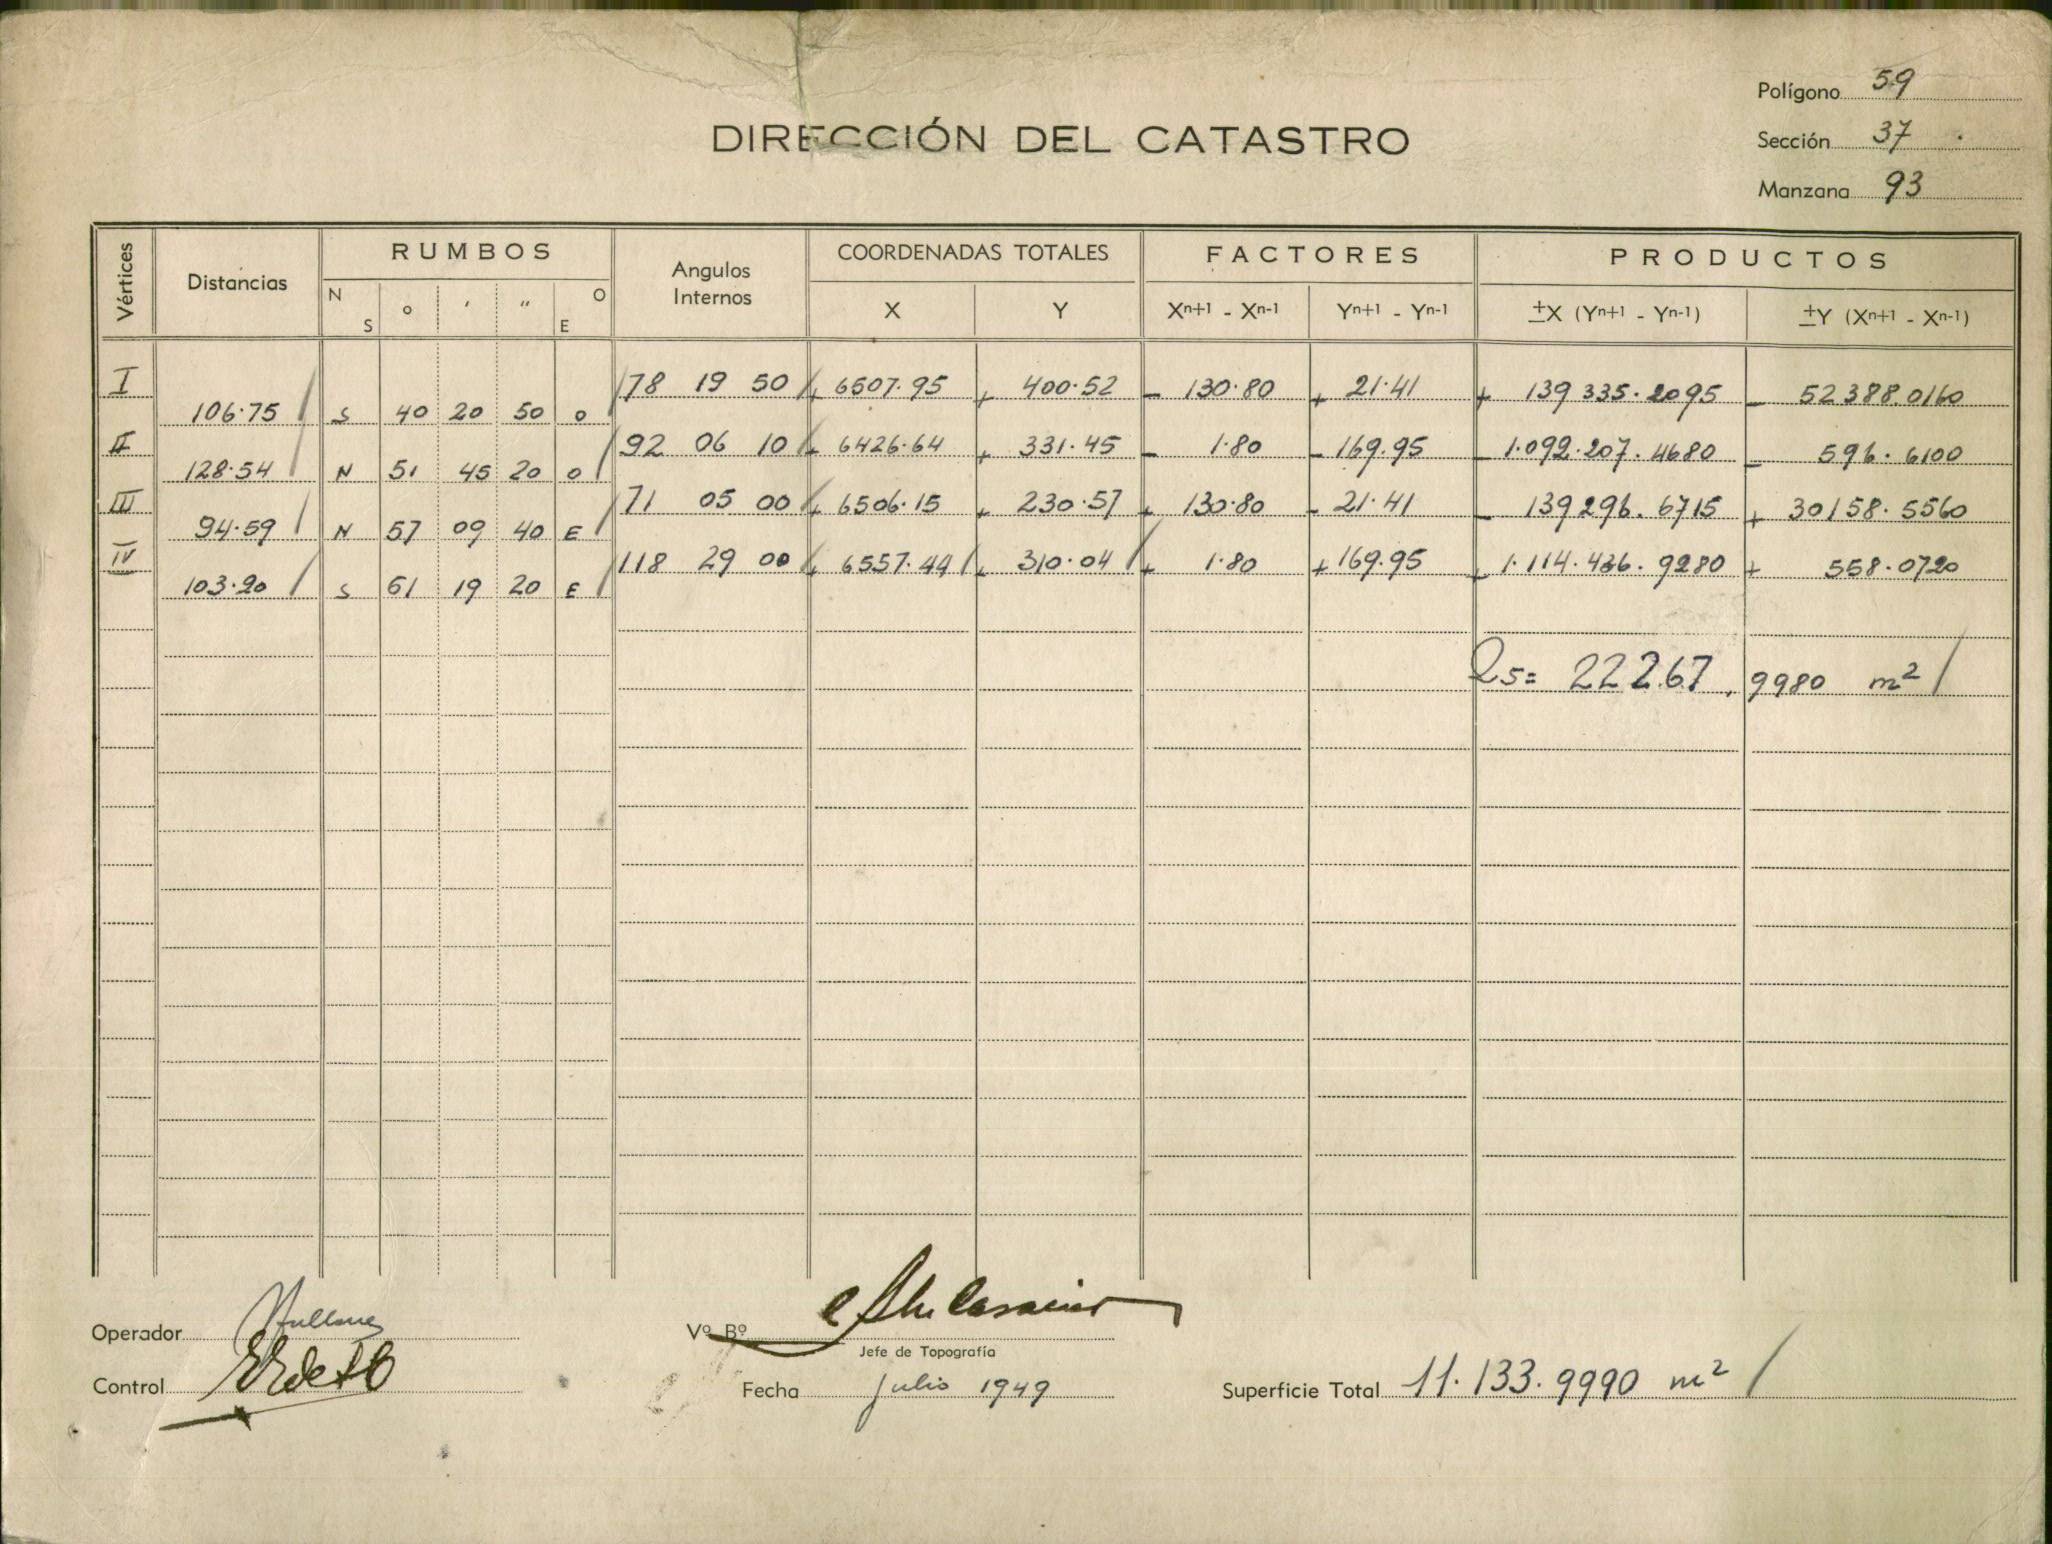 Polígono 59
DIRECCIÓN DEL CATASTRO
Sección 37
Manzana 93
Vértices Distancias RUMBOS Angulos Internos COORDENADAS TOTALES FACTORES PRODUCTOS
N S ° ' " O E X Y Xⁿ⁺¹ - Xⁿ⁻¹ Yⁿ⁺¹ - Yⁿ⁻¹ ±X (Yⁿ⁺¹ - Yⁿ⁻¹) ±Y (Xⁿ⁺¹ - Xⁿ⁻¹)
I 78 19 50 + 6507.95 + 400.52 - 130.80 + 21.41 + 139 335.2095 - 52388.0160
106.75 S 40 20 50 O
II 92 06 10 + 6426.64 + 331.45 - 1.80 - 169.95 - 1.092.207.4680 - 596.6100
128.54 N 51 45 20 O
III 71 05 00 + 6506.15 + 230.57 + 130.80 - 21.41 - 139296.6715 + 30158.5560
94.59 N 57 09 40 E
IV 118 29 00 + 6557.44 + 310.04 + 1.80 + 169.95 + 1.114.436.9280 + 558.0720
103.20 S 61 19 20 E
2s= 22267.9980 m²
Operador
Vº Bº
Jefe de Topografía
Control
Fecha Julio 1949
Superficie Total 11.133.9990 m²